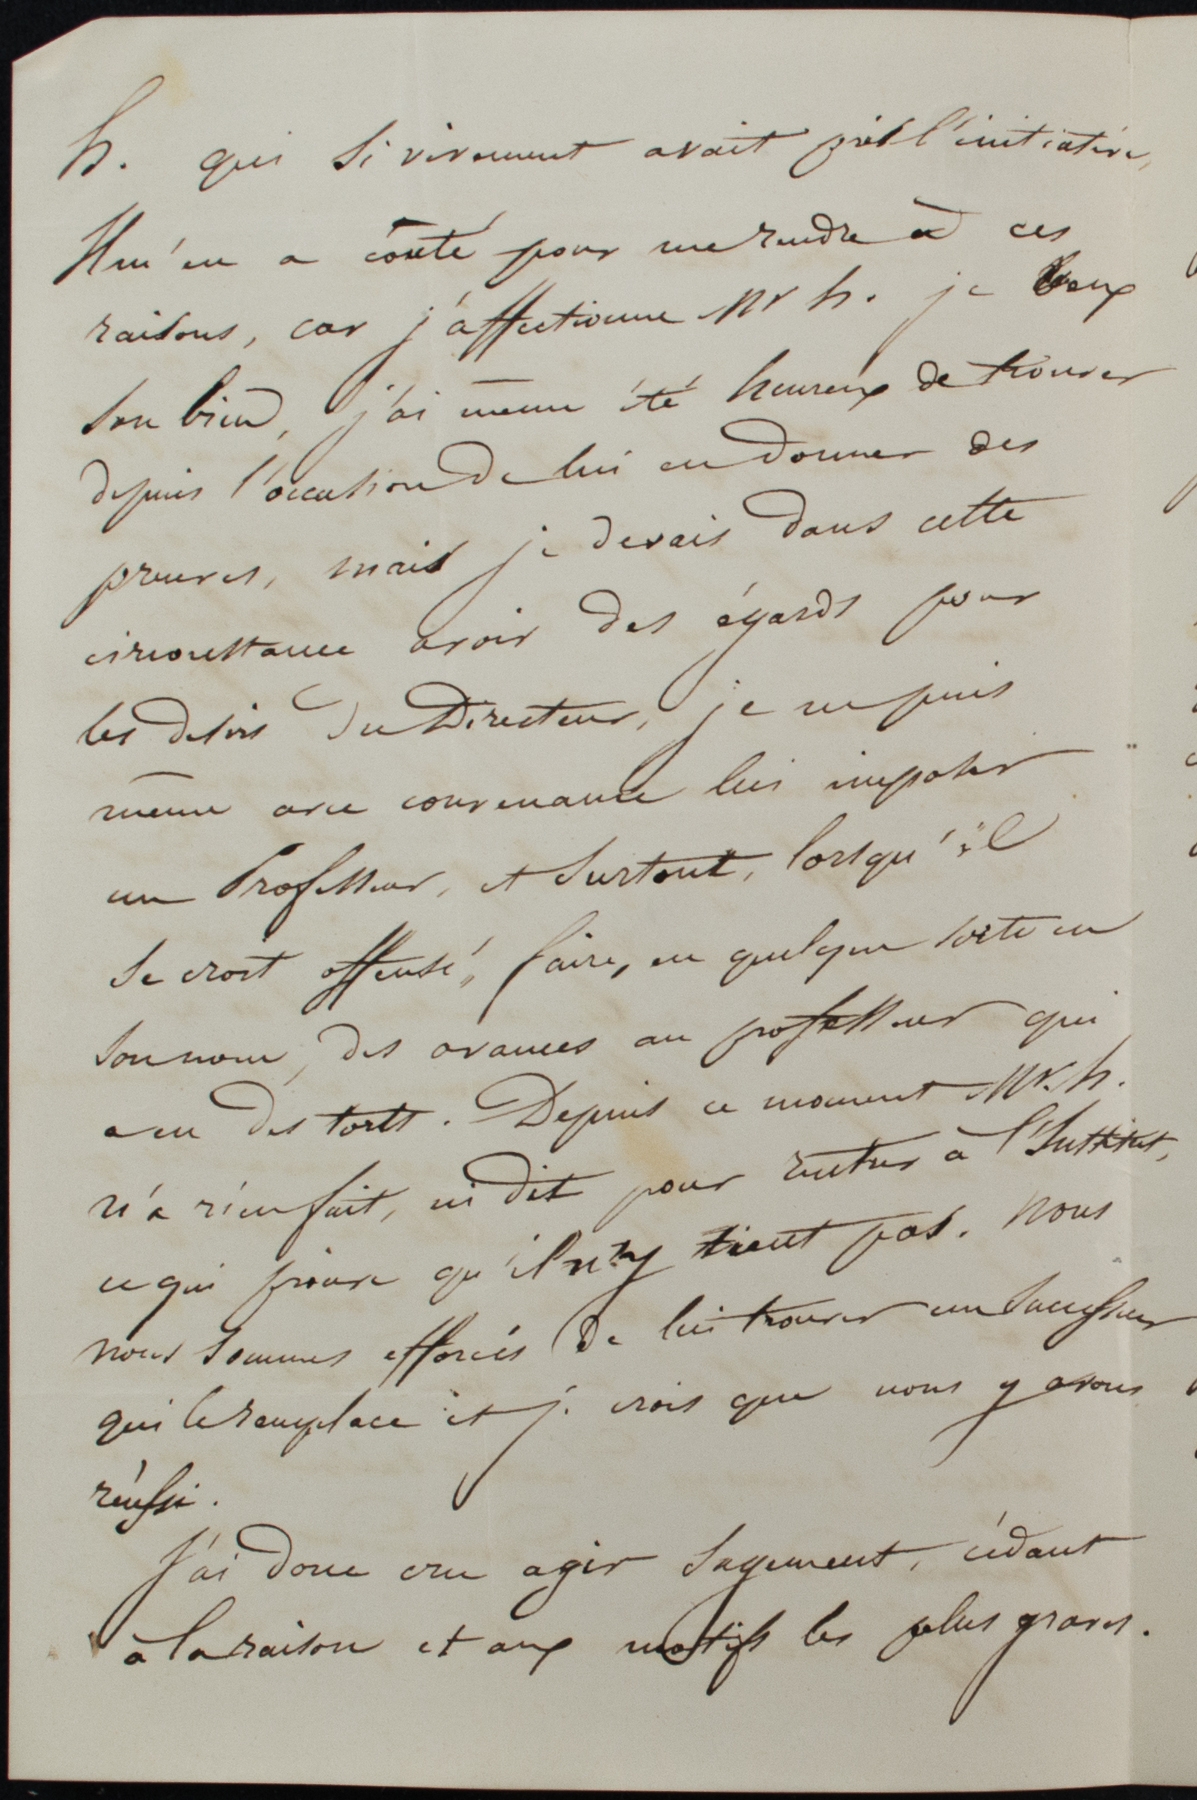 h. qui si vivement avait pris l'initiative,
Il m'en a coûté pour me rendre à ces
raisons, car j'affectionne Mr h. je veux
son bien, j'ai même été heureux de trouver
depuis l'occasion de lui en donner des
preuves, mais je devais dans cette
circonstance avoir des égards pour
les desirs du Directeur, je ne puis
même avec convenance lui imposer
un Professeur, et surtout, lorsqu'il
se croit offensé, faire, en quelque sorte en
son nom, des avances au professeur qui
a eu des torts. Depuis ce moment Mr. h.
n'a rien fait, ni dit pour rentrer à l'Institut,
ce qui prouve qu'il n'y tient pas. Nous
nous sommes efforcés de lui trouver un successeur
qui le remplace et je crois que nous y avons
réussi.
J'ai donc cru agir sagement, cédant
à la raison et aux motifs les plus graves.